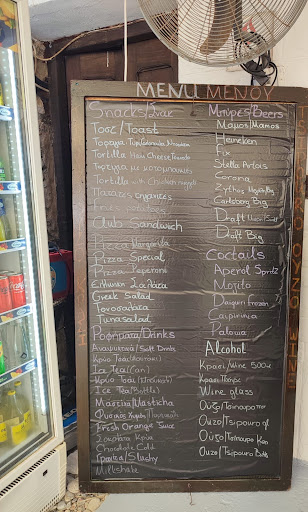 MENU ΜΕΝΟΥ
Snacks/Σνακ
Τοστ/Toast
Tortilla Ham Cheese Tomato
Τορτίγια με κοτομπουκιές
Tortilla with chicken nuggets
Πατάτες τηγανητές
Club Sandwich
Pizza Margarita
Pizza Special
Pizza Peperoni
Ελληνική Σαλάτα
Greek Salad
Τονοσαλάτα
Tunasalad
Ροφήματα/Drinks
Αναψυκτικά/Soft Drinks
Κρύο Τσάι (Κουτάκι)
Ice Tea (can)
Κρύο Τσάι
Ice Tea (Bottle)
Μαστίχα/Masticha
Φυσικός Χυμός
Fresh Orange Juice
Σοκολάτα Κρύα
Chocolate Cold
Γρανίτα/Slushy
Milkshake
Μπύρες/Beers
Μάμος/Mamos
Heineken
Fix
Stella Artois
Corona
Zythos
Carlsberg Big
Draft
Draft Big
Coctails
Aperol Spritz
Mojito
Daiquiri Frozen
Caipirinia
Paloma
Alcohol
Κρασί/Wine 500ml
Κρασί Ποτήρι
Wine glass
Ούζο/Τσίπουρο
Ouzo/Tsipouro
Ούζο/Τσίπουρο
Ouzo/Tsipouro